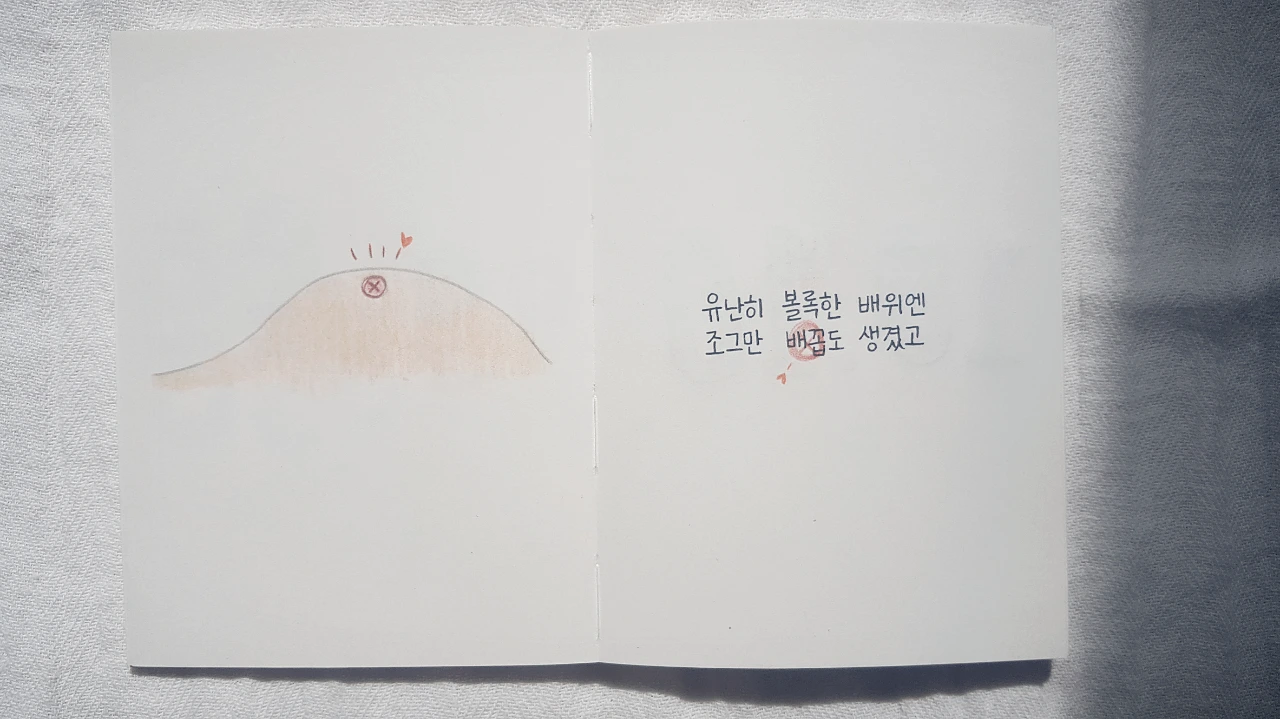 유난히 볼록한 배위엔
조그만 배꼽도 생겼고